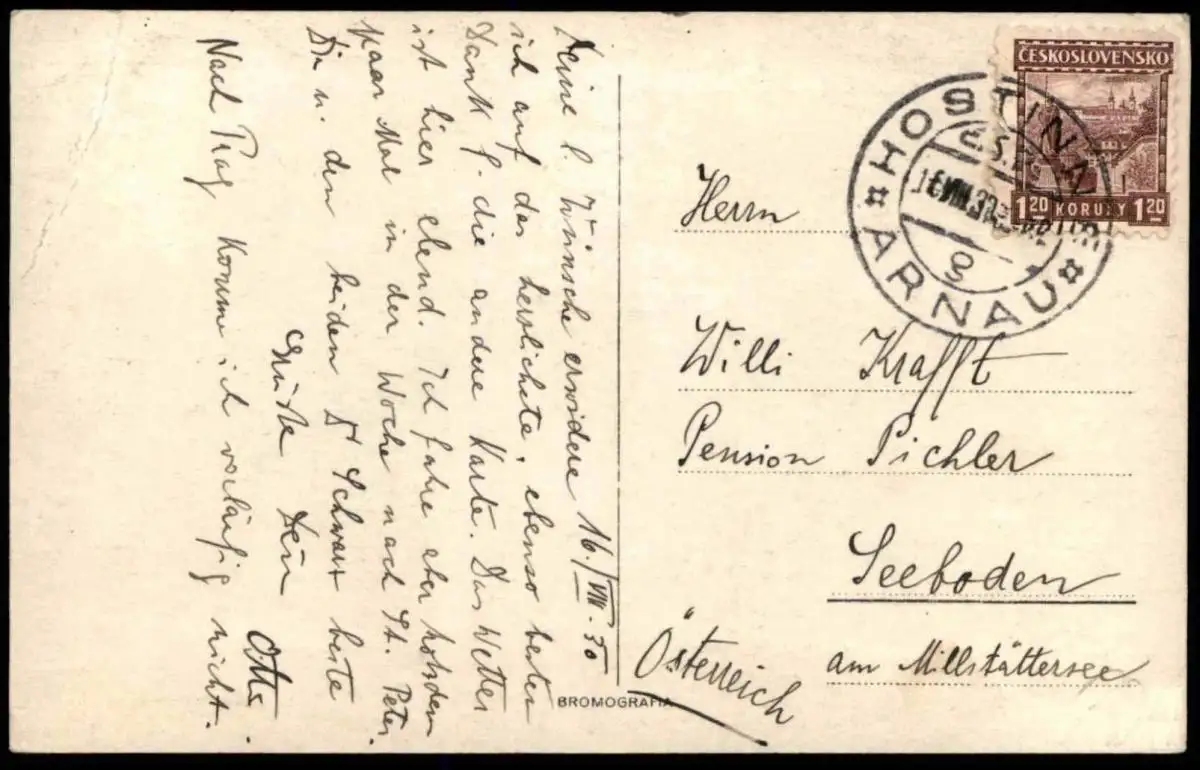 16./VIII. 30
Deine l. Wünsche erwidere
ich auf das herzlichste, ebenso besten
Dank f. die andere Karte. Das Wetter
ist hier elend. Ich fahre aber trotzdem
paar Mal in der Woche nach St. Peter.
Dir u. den beiden Schwarz beste
Grüße Dein Otto
Nach Prag komme ich vorläufig nicht.
BROMOGRAFIA
ČESKOSLOVENSKO
1.20 KORUNY 1.20
HOSTINNÉ
ARNAU
Herrn
Willi Krafft
Pension Pichler
Seeboden
am Millstättersee
Österreich